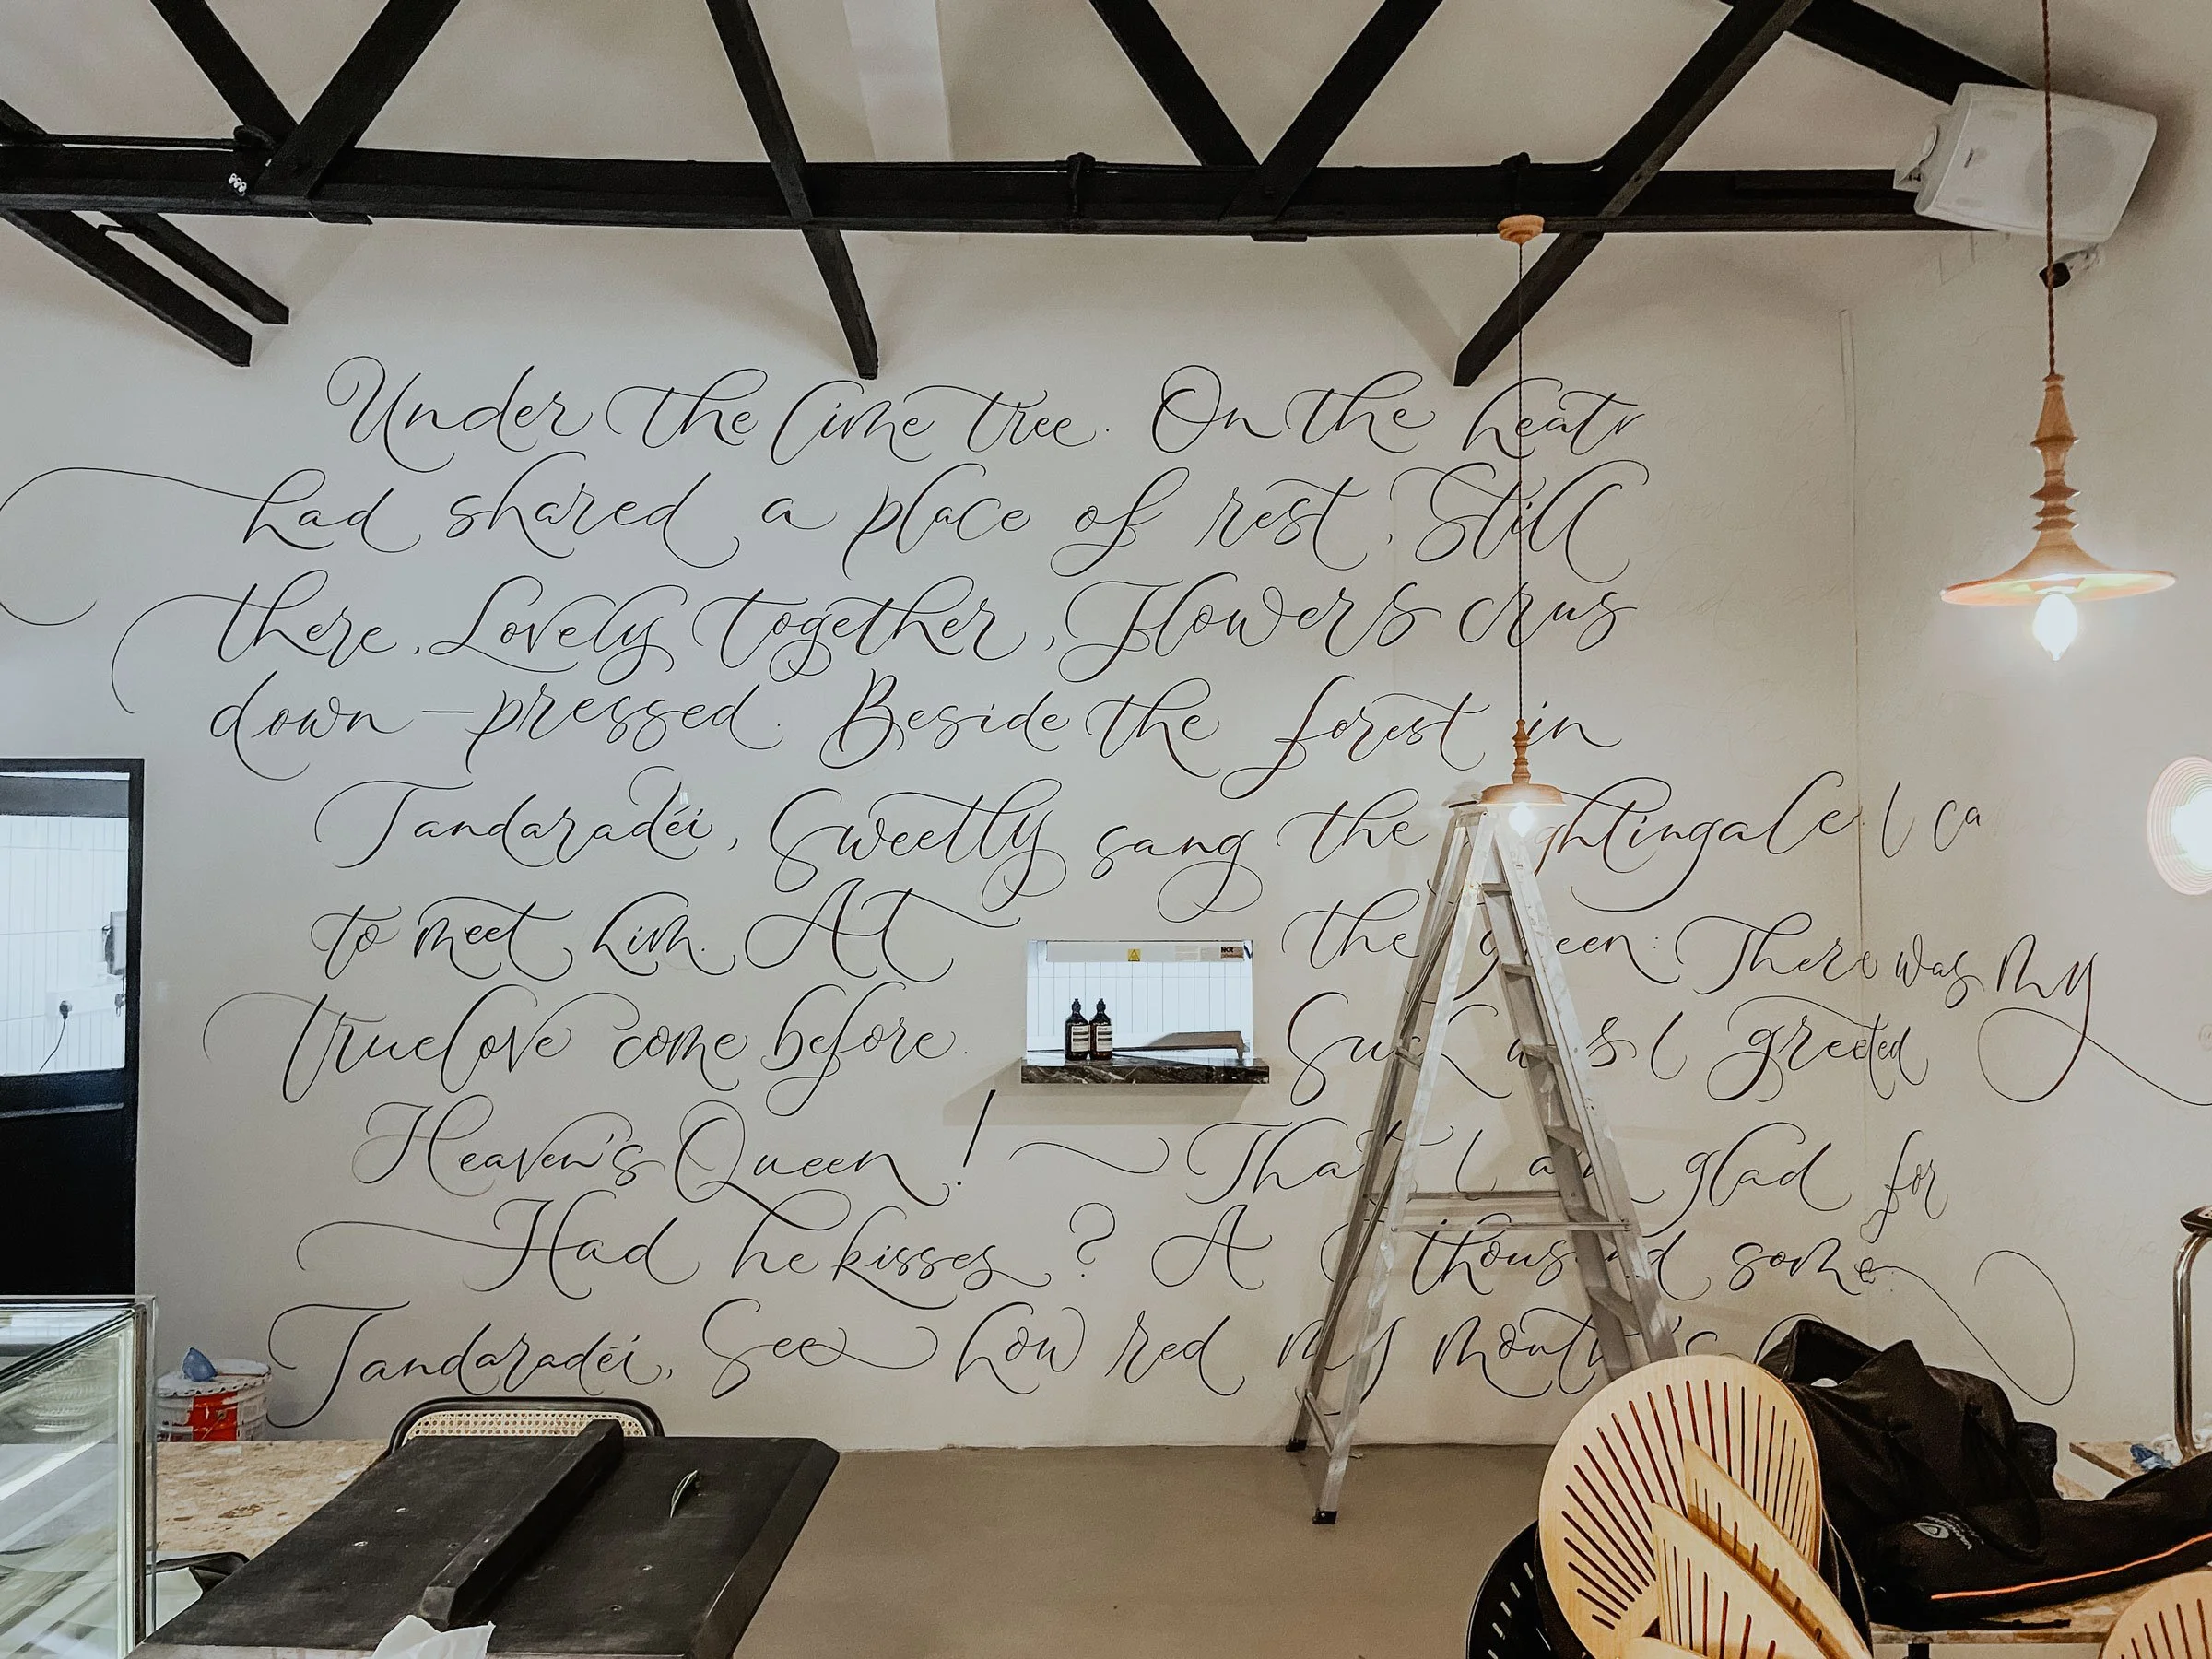 Under the lime tree. On the heat
had shared a place of rest, Still
there, Lovely together, Flowers crus
down-pressed. Beside the forest in
Tandaradéi, Sweetly sang the ghtingale. I ca
to meet him. At the g een: There was my
truelove come before. Suc was I greeted
Heaven's Queen! That I am glad for
Had he kisses? A thousand some
Tandaradéi, See how red my mouth's